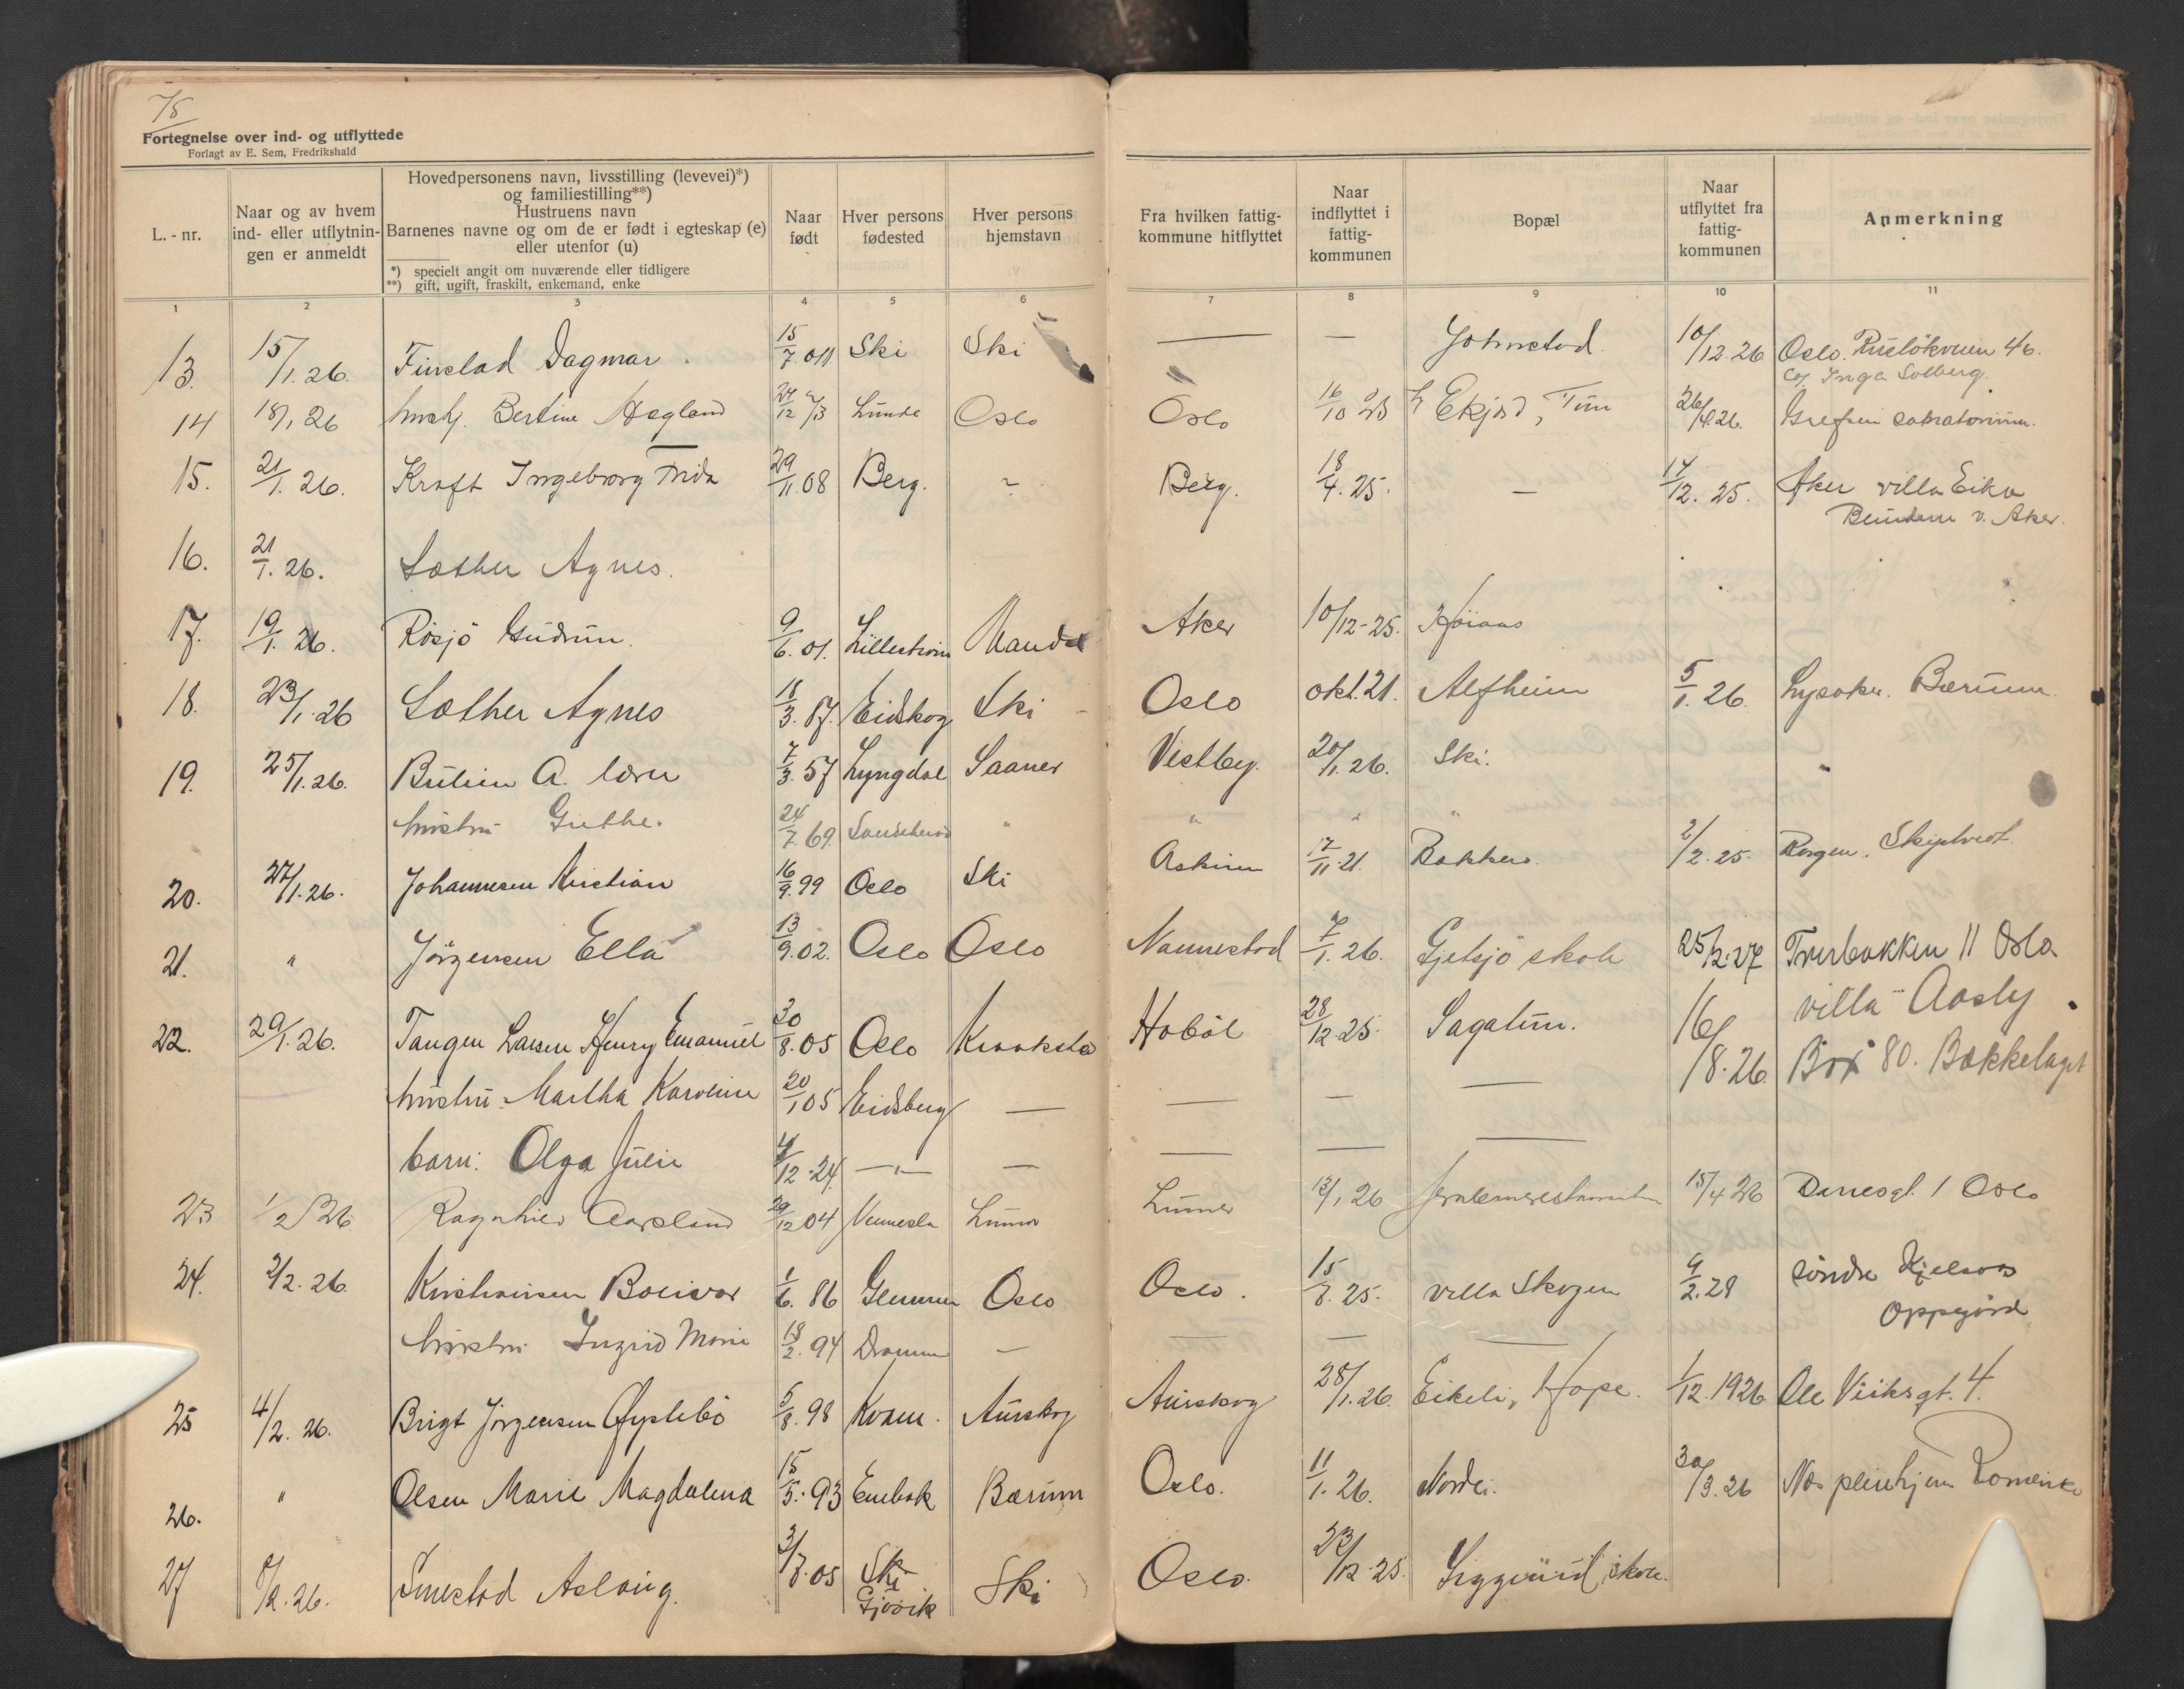 78
Fortegnelse over ind- og utflyttede
Forlagt av E. Sem, Fredrikshald
L. - nr.
Naar og av hvem ind- eller utflytningen er anmeldt
Hovedpersonens navn, livsstilling (levevei)*)
og familiestilling**)
Hustruens navn
Barnenes navne og om de er født i egteskap (e)
eller utenfor (u)
*) specielt angit om nuværende eller tidligere
**) gift, ugift, fraskilt, enkemand, enke
Naar født
Hver persons fødested
Hver persons hjemstavn
Fra hvilken fattigkommune hitflyttet
Naar indflyttet i fattigkommunen
Bopæl
Naar utflyttet fra fattigkommunen
Anmerkning
1 2 3 4 5 6 7 8 9 10 11
13. 15/1.26. Finstad Dagmar. 15/7.011 Ski Ski — — 10/12.26 Oslo. Rusløkveien 46.
c/o Inga Solberg.
14 18/1 26 Bertine Hagland Lunde Oslo Oslo 26/4.26. Grefsen
15. 21/1.26. Kraft Ingeborg Frida 29/11.08 Berg. Berg. 18/4.25. — 17/12.25. Aker villa Eika
v. Aker.
16. 21/1.26. Sæther Agnes.
17. 19/1.26. Røsjö Gudrun. 9/6.01. Lillestrøm Aker 10/12-25.
18. 23/1.26 Sæther Agnes 18/3.87. Eidskog Ski Oslo okt.21. Alfheim 5/1.26. Lysaker. Bærum.
19. 25/1.26. A. lærer 7/3.57 Lyngdal Saaner Vestby. 20/1.26. Ski.
hustru Grethe. 24/7.69. " " " "
20. 27/1.26. Johannesen Kristian 16/9.99 Oslo Ski Askim 17/11.21. Bakken. 2/2.25. Skiptvedt.
21. " Jörgensen Ella 13/9.02. Oslo Oslo Nannestad 7/1.26. Gjetsjø skole 25/2.27 Tverbakken 11 Oslo
22. 29/1.26. Tangen Larsen Henry Emanuel 30/8.05 Oslo Kraakstad Hobøl 28/12.25. Sagatun. 16/8.26. villa Aasly
Box 80. Bækkelaget
hustru. Martha Karoline 20/1 05 Eidsberg — — — —
barn: Olga Julie 4/12.24. —"— — — — —
23 1/2 26 Ragnhild Aarsland 29/12 04 Vennesla Lunner Lunner 13/1 26 15/4 26 Oslo
24. 2/2.26. Kristiansen 1/6.86 Glemmen Oslo Oslo. 15/8.25. villa Skogen 9/2.28 søndre Kjelsaas
Oppegård
hustru Ingrid Marie 18/2.94 Drammen — — — —
25 4/2.26. Brigt Jörgensen Øystebö 5/8.98 Kvam. Aurskog Aurskog 28/1.26. Eikeli, 1/12.1926 Ole Viiksgt. 4.
26. " Olsen Marie Magdalena 15/5.93 Enebak Bærum Oslo. 11/1.26. 30/3.26 Næs pleiehjem Romerike
27 8/2.26. Smestad Aslaug. 3/8.05 Ski
Gjøvik Ski Oslo. 23/12.25. Siggerud skole.